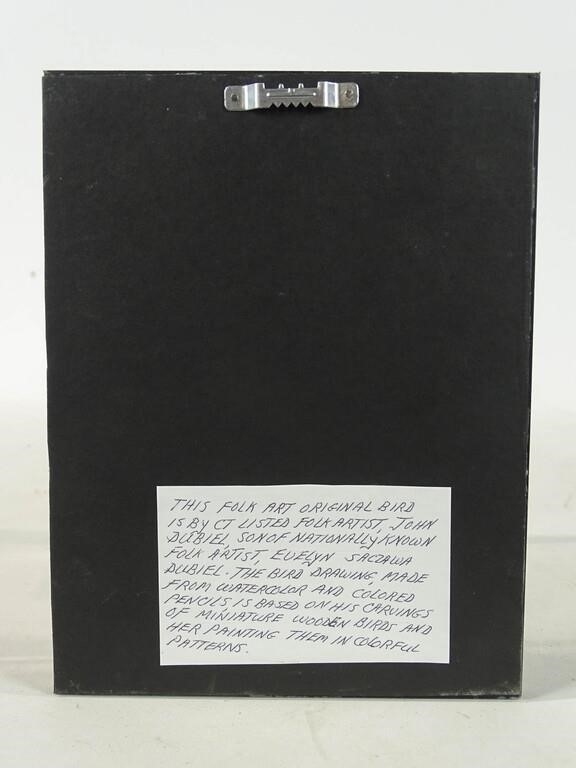 THIS FOLK ART ORIGINAL BIRD
IS BY CT LISTED FOLK ARTIST, JOHN
DUBIEL, SON OF NATIONALLY KNOWN
FOLK ARTIST, EVELYN SACZAWA
DUBIEL. THE BIRD DRAWING, MADE
FROM WATERCOLOR AND COLORED
PENCILS IS BASED ON HIS CARVINGS
OF MINIATURE WOODEN BIRDS AND
HER PAINTING THEM IN COLORFUL
PATTERNS.